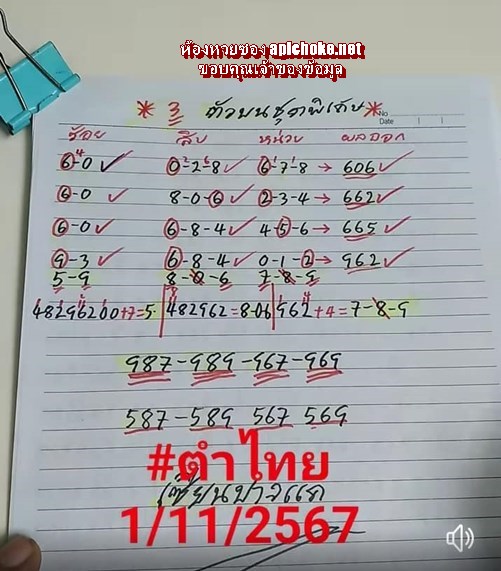 ห้องหวยซอง apichoke.net
ขอบคุณเจ้าของข้อมูล
* 3 ตัวบนชุดพิเศษ *
No
Date
ร้อย สิบ หน่วย ผลออก
6-0 4 0-2-8 2 6 6-7-8 1 1 → 606
6-0 8-0-6 2-3-4 → 662
6-0 6-8-4 4-5-6 → 665
9-3 6-8-4 0-1-2 → 962
5-9 8-0-6 7-8-9
48296200+7=5. 482962=8-06 962+4=7-8-9
987-989-967-969
587-589 567 569
#ตำไทย
เซียนบางแค
1/11/2567